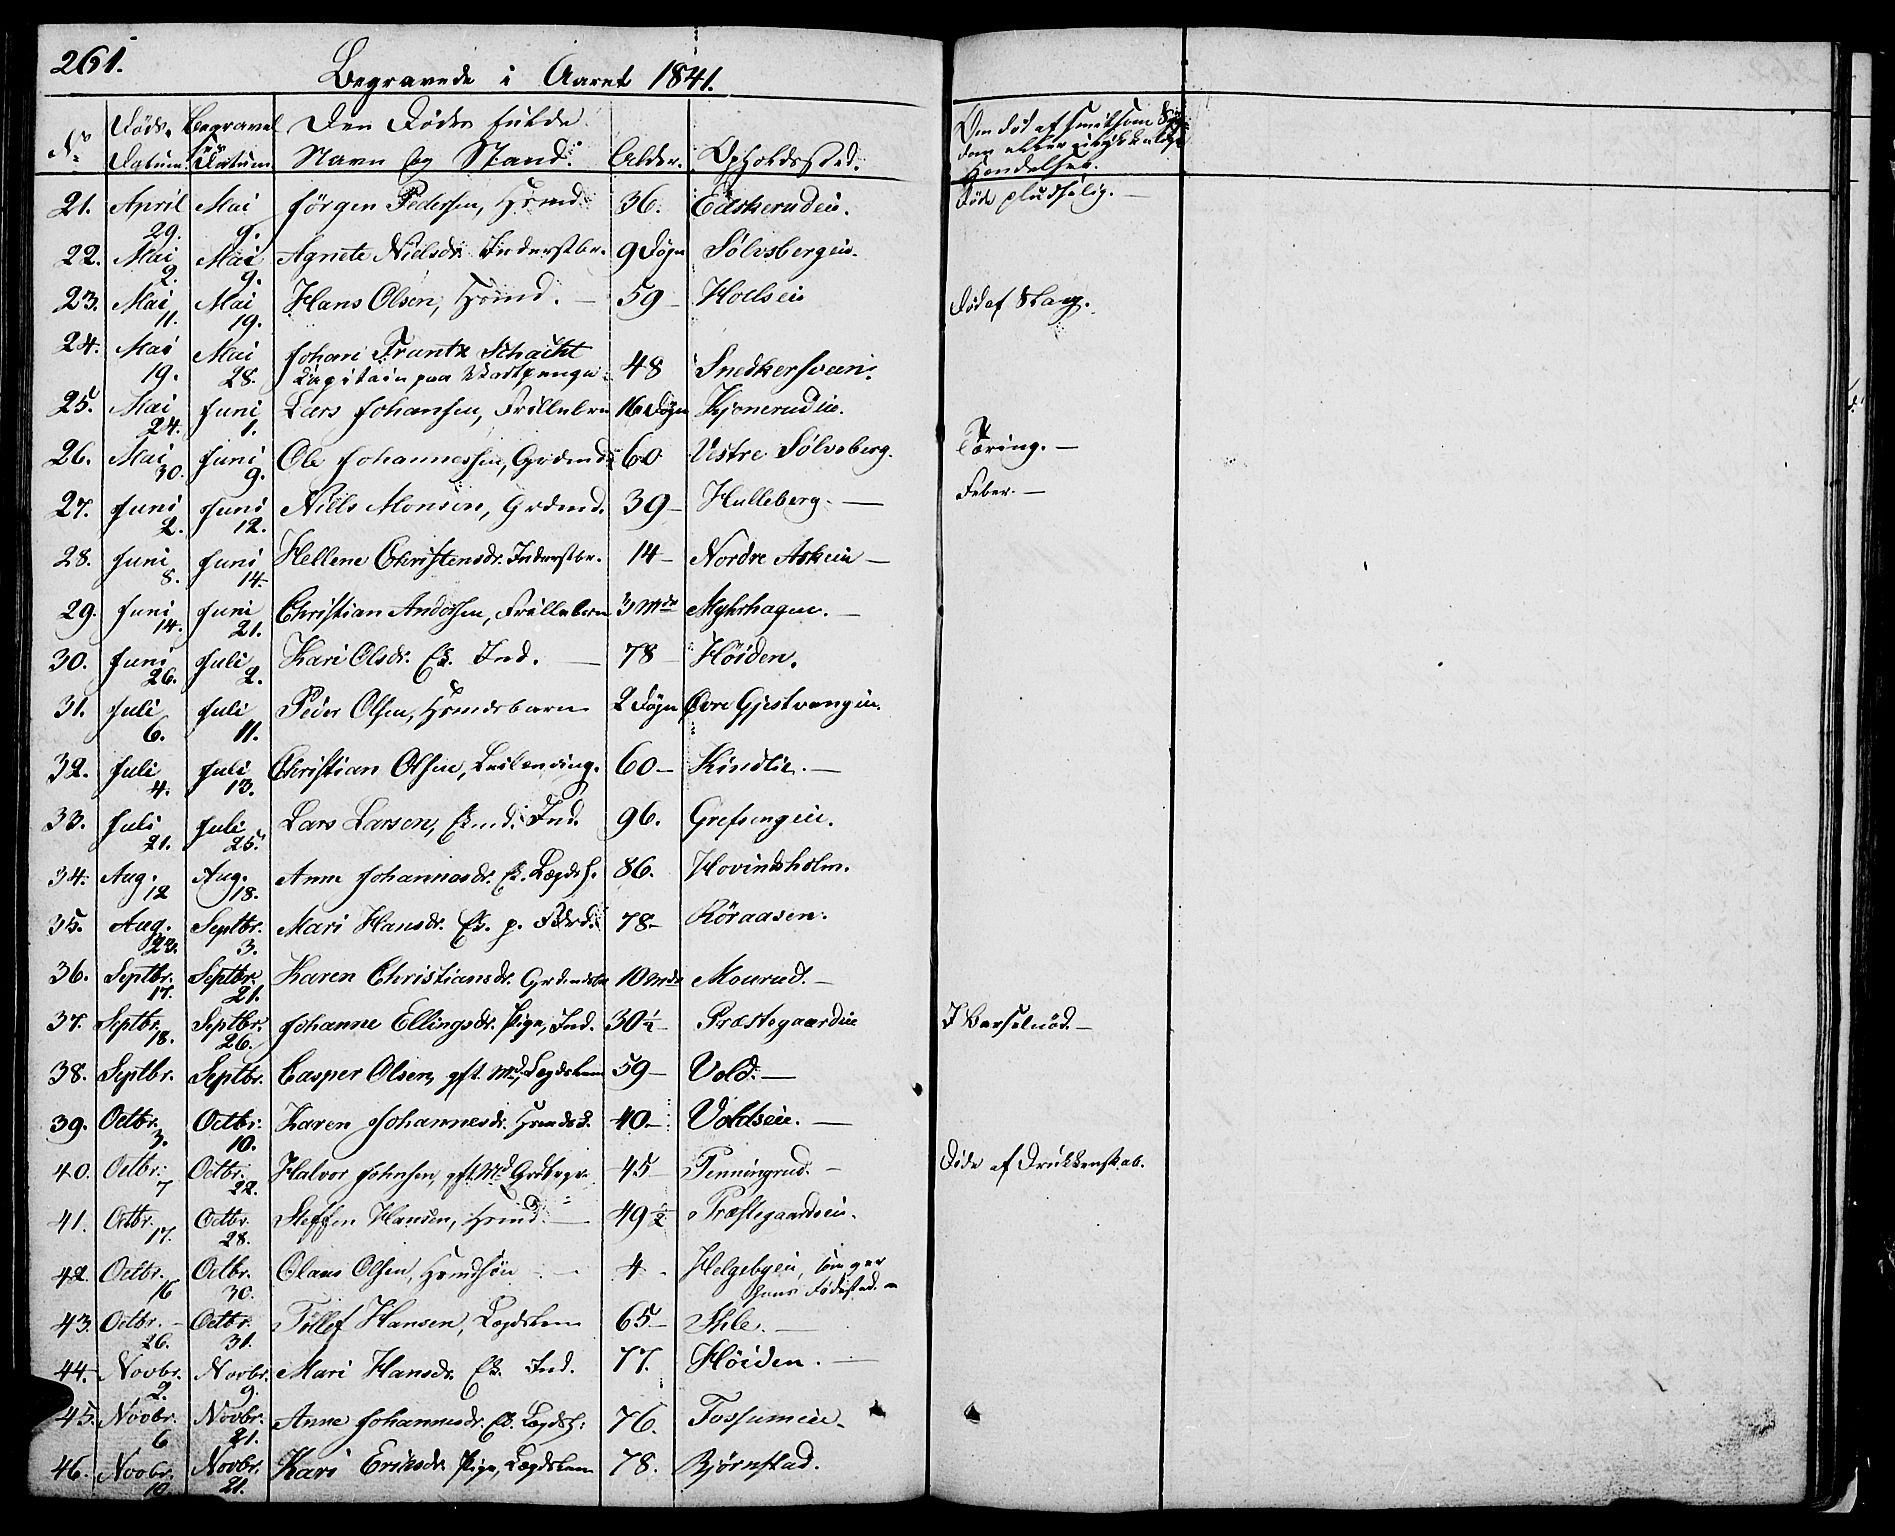 261.
Begravede i Aaret 1841.
No Døds- Datum. Begravelses Datum. Den Dødes fulde Navn og Stand. Alder. Opholdssted. Om død af smitsom Sygdom eller ulykkelige Hændelser.
21. April 29. Mai 9. Jørgen Pedersen, Hsmd. 36. Død pludselig. —
22. Mai 2. Mai 9. Agnete Nielsdr. Inderstbr. 9 Døgn Sølvsbergeie.
23. Mai 11. Mai 19. Hans Olsen, Hsmd. — 59 — Død af Slag.
24. Mai 19. Mai 28. Johan Frantz Schacht Capitain paa Vartpenge. 48
25. Mai 24. Juni 1. Lars Johansen, Frillebrn 16 Døgn Kjonerudeie.
26. Mai 30. Juni 9. Ole Johannessen, Grdmd. 60 Vestre Sølvsberg. Tæring. —
27. Juni 2. Juni 12. Niels Monsen, Grdmd. 39 — Hulleberg. — Feber. —
28. Juni 8. Juni 14. Hellene Christensdr. Inderstbr. 14 — Nordre Askeie —
29. Juni 14. Juni 21. Christian Andersen, Frillebrn 3 Mdr Myhrhagen. —
30. Juni 26. Juli 2. Kari Olsdr. Ek. Ind. — 78 — Høiden.
31. Juli 6. Juli 11. Peder Olsen, Hsmdsbarn 2 Døgn Øvre Gjestvangeie.
32. Juli 4. Juli 13. Christian Olsen, Leilænding. 60 — Kindlie. —
33. Juli 21. Juli 25. Lars Larsen, Ekmd. Ind. 96. Grefsengeie.
34. Aug. 12 Aug. 18. Anne Johannesdr. Ek. Lægdsl. 86. Hovindsholm.
35. Aug. 23. Septbr. 3. Mari Hansdr. Ek. p. Fdrd. 78 — Røraasen.
36. Septbr. 17. Septbr. 21. Karen Christiansdr. Grdmdsbr 10 Mdr Mourud. —
37. Septbr. 18. Septbr. 26. Johanne Ellingsdr. Pige, Ind. 30½ — Præstegaardeie I Barselnød. —
38. Septbr. Septbr. Casper Olsen, gift Md, Lægdslem 59 — Vold. —
39. Octbr. 3. Octbr. 10. Karen Johannesdr. 40. — Voldseie. —
40. Octbr. 7 Octbr. 22. Halvor Johnsen, gft. Md 45 — Penningrud. — Døde af Drukkenskab.
41. Octbr. 17. Octbr. 28. Steffen Hansen, Hsmd. — 49½ Præstegaardseie.
42. Octbr. 16 Octbr. 30. Olaus Olsen, Hsmdsøn — 4 — Helgebyeie, hans Fødested. —
43. Octbr. 26. Octbr. 31. Tøllef Hansen, Lægdslem 65 — Ihle. —
44. Novbr. 2. Novbr. 9. Mari Hansdr. Ek. Ind. 77. Høiden. —
45. Novbr. 6 Novbr. 21. Anne Johannesdr. Ek. Lægdsl. 76. Fossumeie.
46. Novbr. 10. Novbr. 21. Kari Eriksdr. Pige, Lægdslem 78. Bjørnstad.